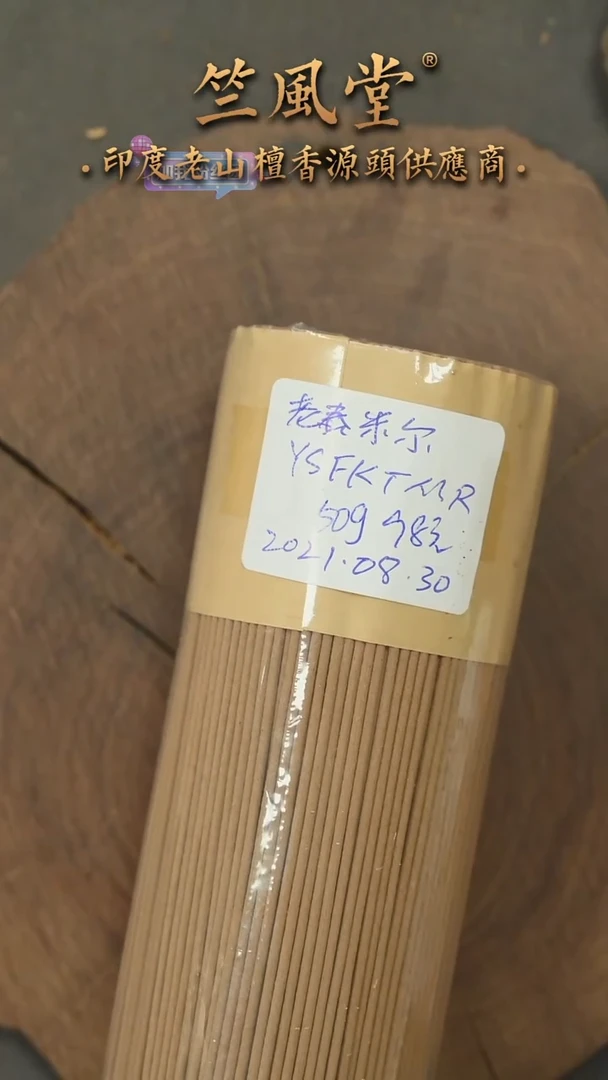 竺風堂®
·印度老山檀香源頭供應商·
老泰米尔
YSFKTMR
50g 98元
2021.08.30